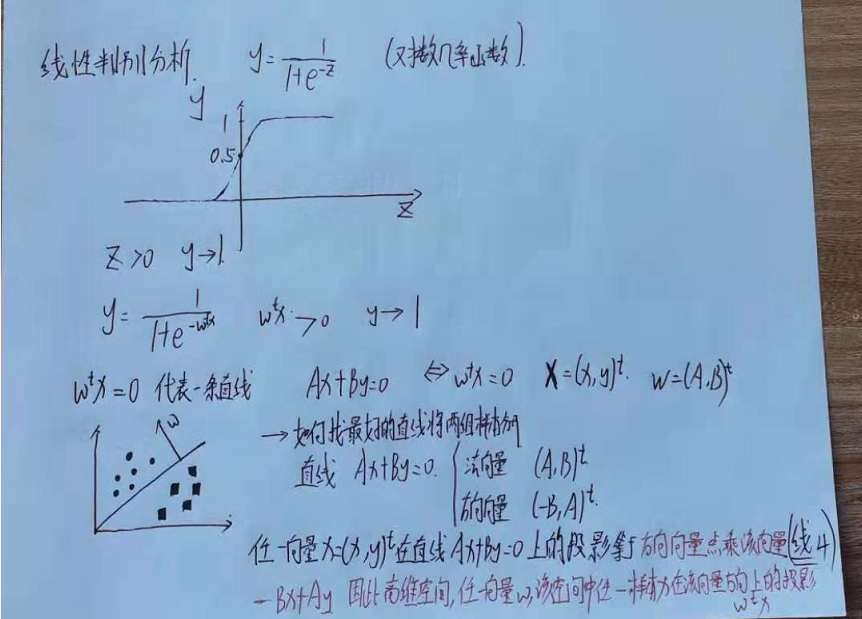 线性判别分析. y=1/(1+e^-z) (对数几率函数).
y
1
0.5
z
z>0 y→1
y=1/(1+e^-wᵗx) wᵗx>0 y→1
wᵗx=0 代表一条直线 Ax+By=0 ⇔ wᵗx=0 X=(x,y)ᵗ. w=(A,B)ᵗ
w
→如何找最好的直线将两组样本分
直线 Ax+By=0. { 法向量 (A,B)ᵗ
方向量 (-B,A)ᵗ.
任一向量x=(x,y)ᵗ在直线Ax+By=0上的投影等于方向向量点乘该向量(线4)
-Bx+Ay 因此高维空间,任一向量w,该空间中任一样本x在该向量方向上的投影
wᵗx